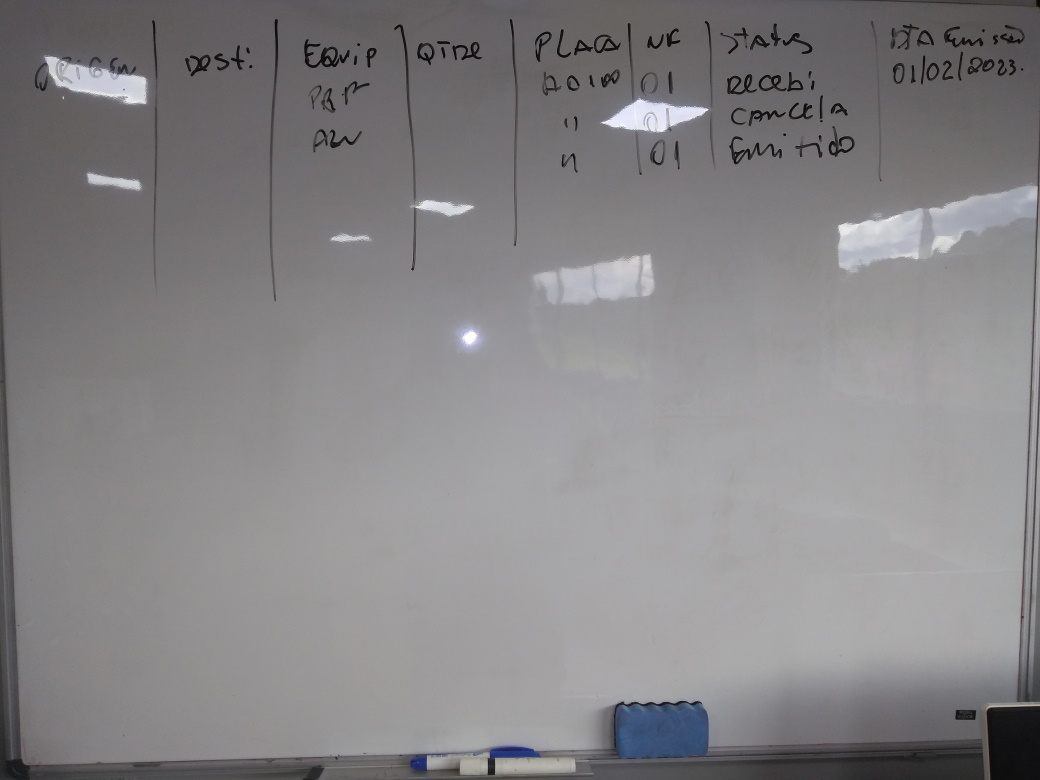 ORIGEM Desti: EQuip QTDE PLACA NF Status DTA Emissão
01 Recebi 01/02/2023.
" 01 CANCELA
" 01 Emitido